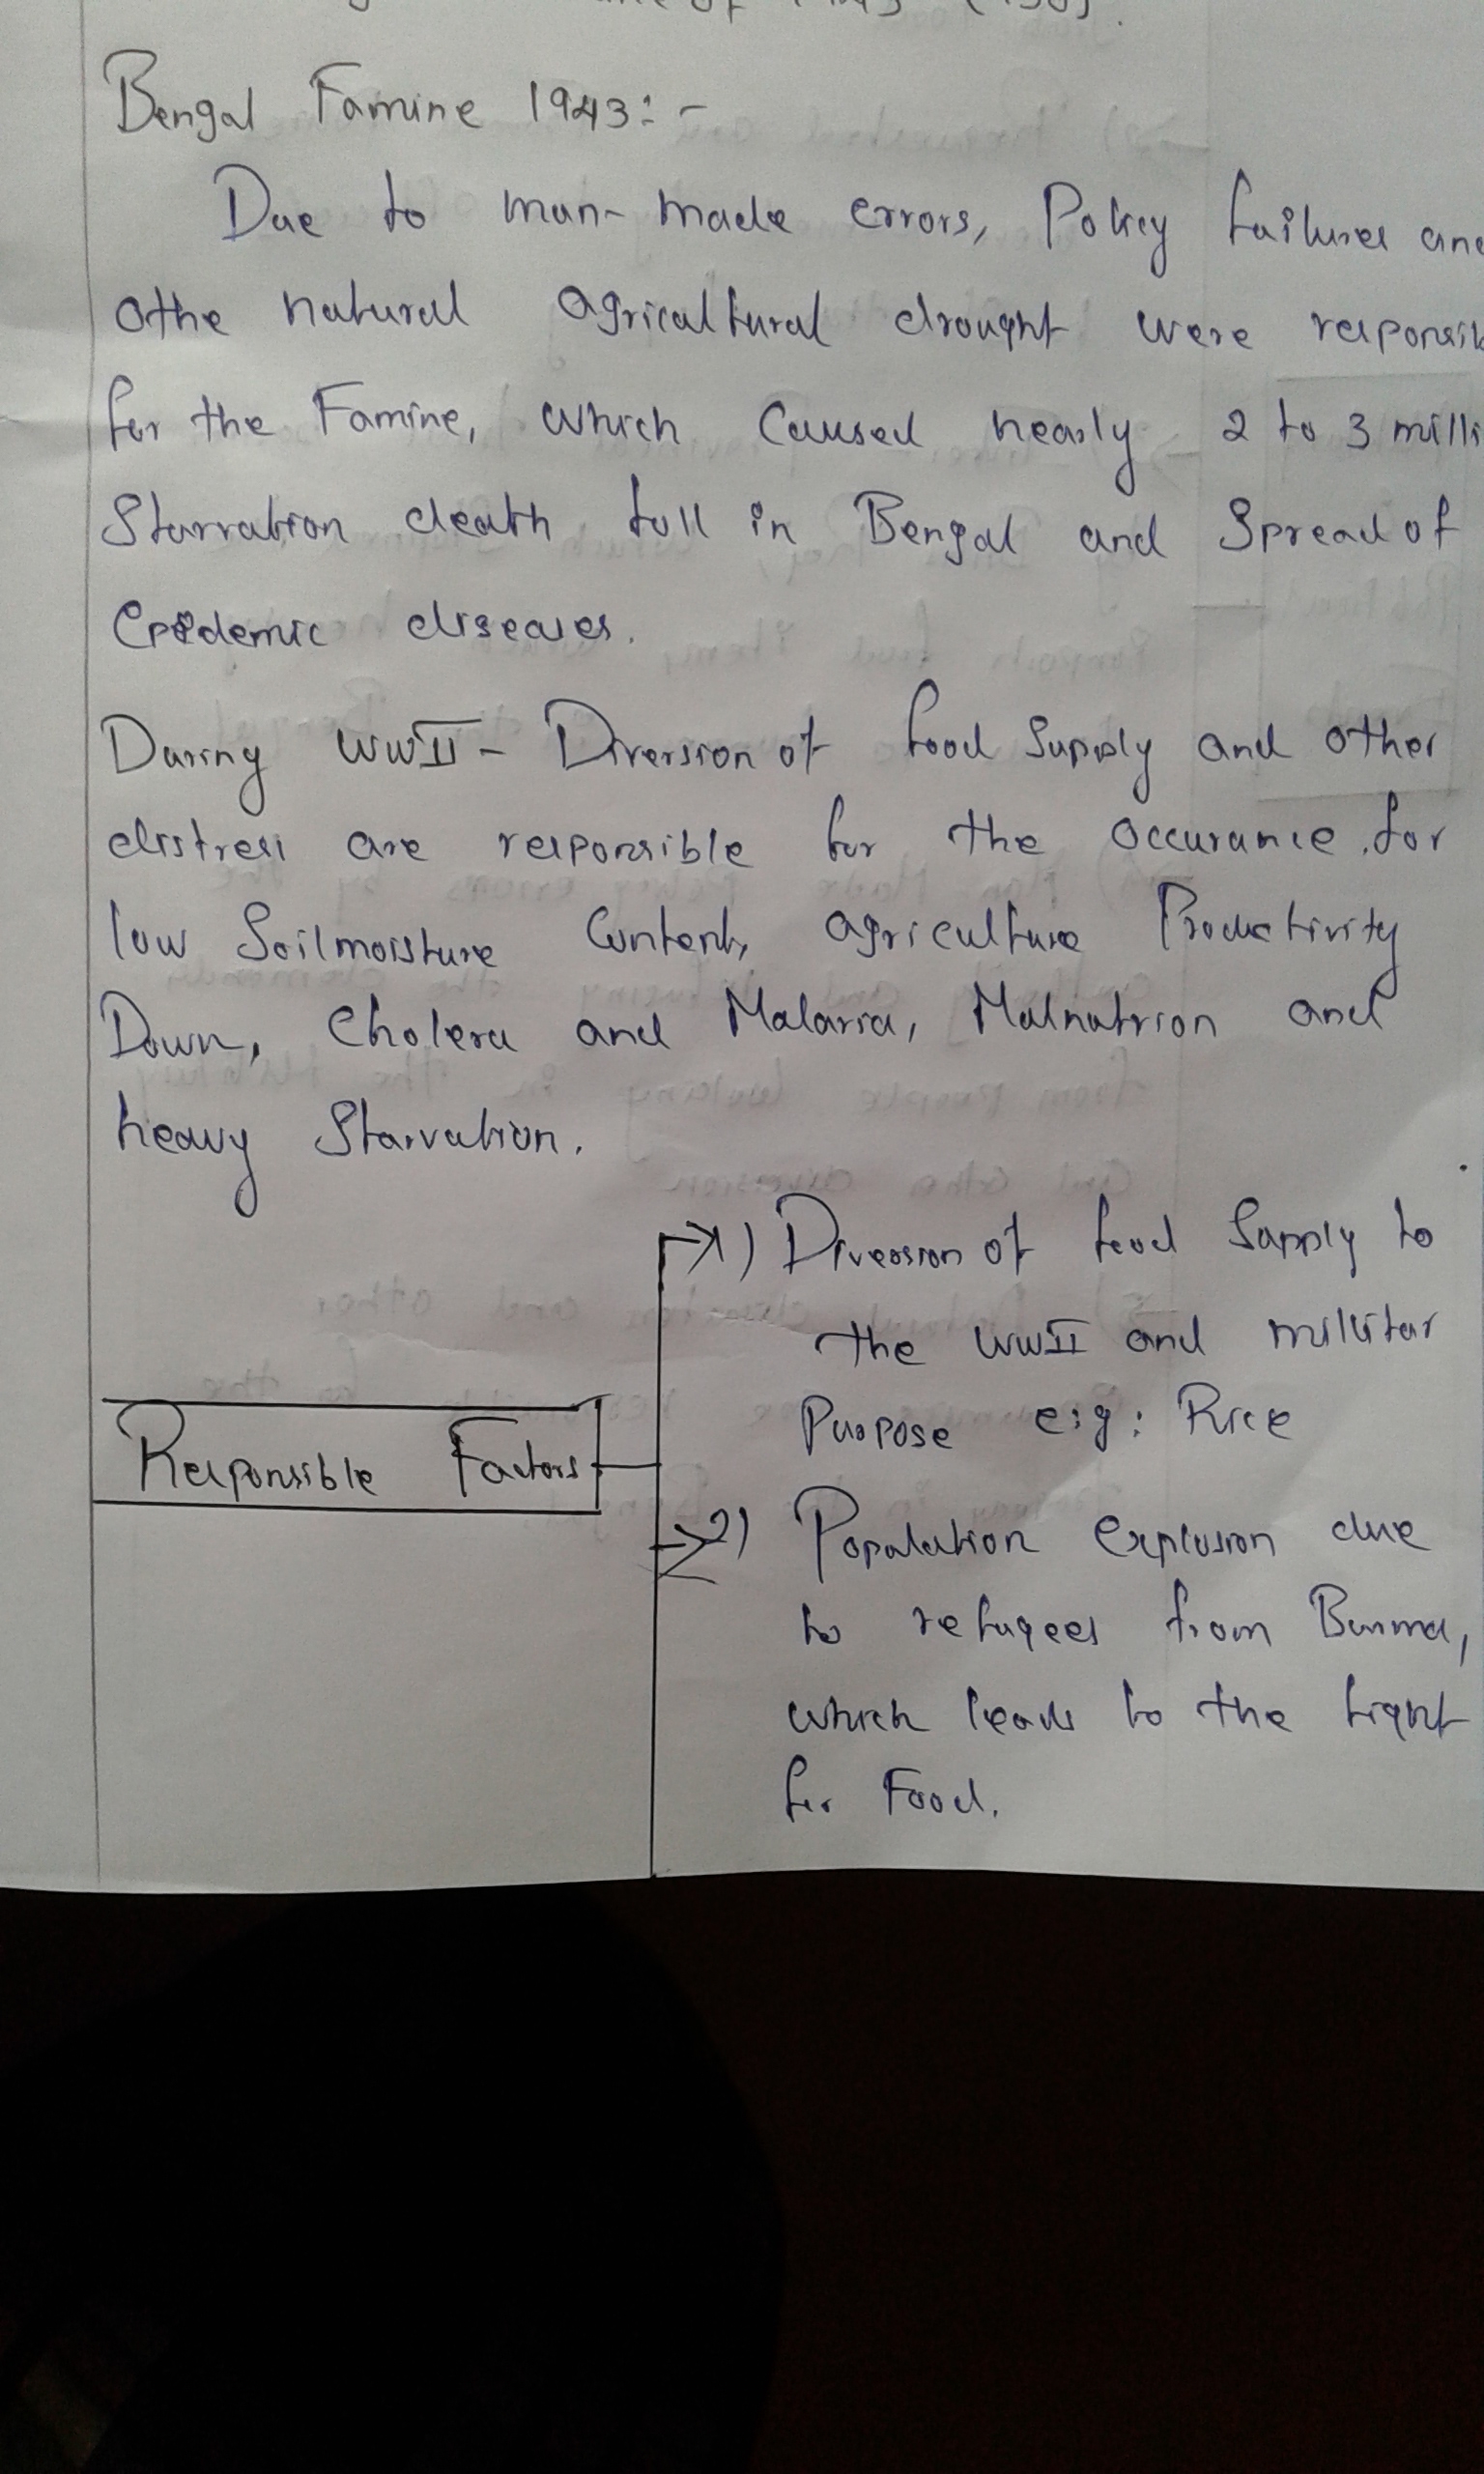 of 1943 (150)
Bengal Famine 1943:-
Due to man-made errors, Policy failures and
othe natural agricultural drought were responsib
for the Famine, which caused nearly 2 to 3 milli
Starvation death toll in Bengal and Spread of
Epidemic diseases.
During WWII - Diversion of food Supply and other
distress are responsible for the occurance for
low Soilmoisture Content, agriculture Productivity
Down, Cholera and Malaria, Malnutrion and
heavy Starvation.
1) Diversion of food Supply to
the WWII and millitar
Purpose e:g: Rice
Responsible Factors
2) Population explosion due
to refugees from Burma,
which leads to the fight
for Food.